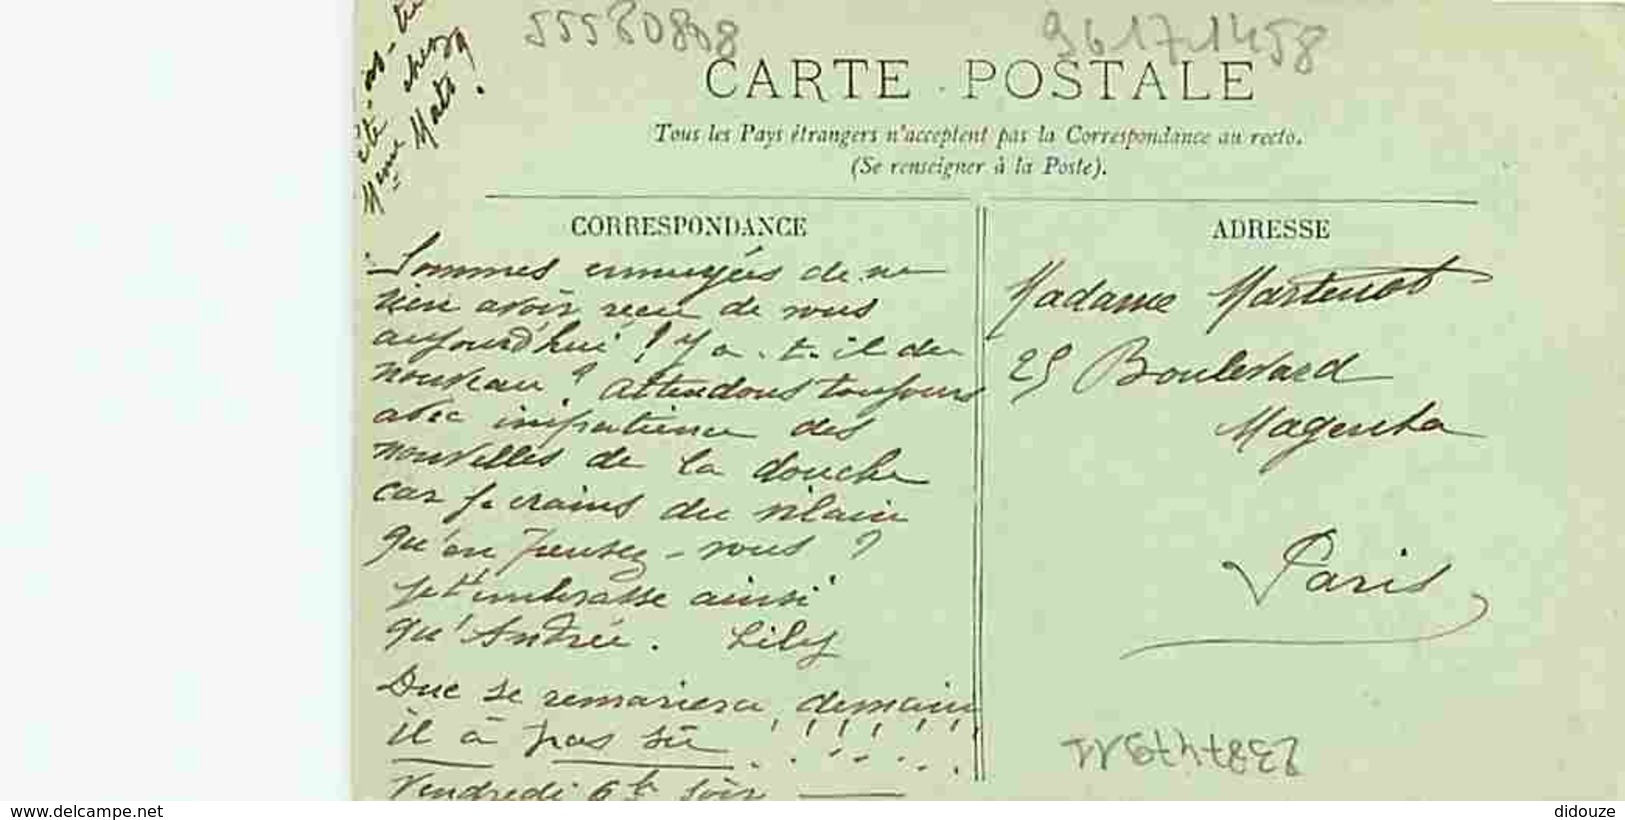 55580808
961717458
CARTE POSTALE
Tous les Pays étrangers n'acceptent pas la Correspondance au recto.
(Se renseigner à la Poste).
CORRESPONDANCE
ADRESSE
été
chez
Mme Mato!
Sommes ennuyées de ne
rien avoir reçu de vous
aujourd'hui! Y a-t-il du
nouveau? Attendons toujours
avec impatience des
nouvelles de la douche
car je crains du vilain
qu'en pensez-vous?
je t'embrasse ainsi
qu'Andrée. Lily
Duc se remariera demain!!!!!!
il a pas su
Vendredi 6h soir
Madame Martenot
25 Boulevard
Magenta
Paris
www.delcampe.net
didouze